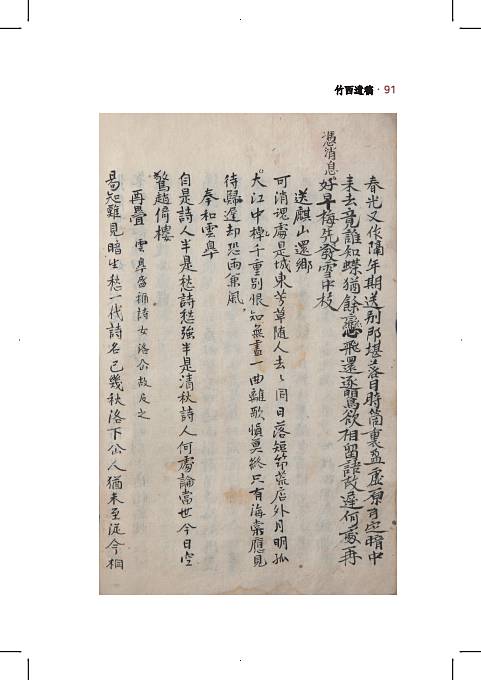 竹西遺稿 · 91
春光又作隔年期送別那堪落日時筒裏盈虛原可定暗中
來去竟誰知蝶猶餘戀飛還逐鶯欲相留語故遲何處再
憑消息好早梅先發雪中枝
送麒山還鄉
可消魂處是城東芳草隨人去〻同日落短筇荒店外月明孤
大江中樓千重別恨知無盡一曲離歌愼莫終只有海棠應見
待歸遲却恐雨兼風
奉和雲皐
自是詩人半是愁詩愁強半是清秋詩人何處論當世今日空
驚趙倚樓
再疊 雲皐 詩女洛公故及之
曷知難見暗生愁一代詩名已幾秋洛下公人猶未至從今桐